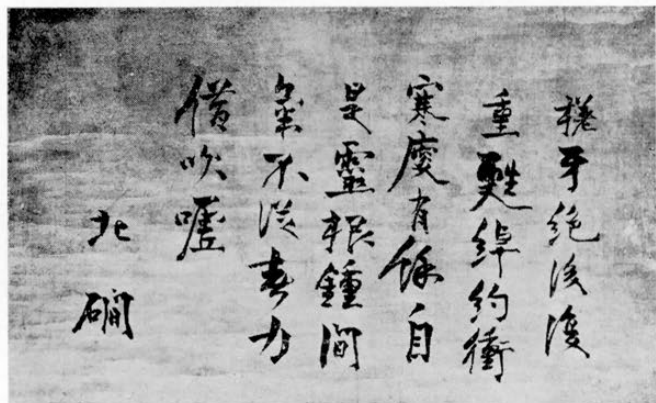 牙絶後復
重甦綽約衝
寒有餘自
是靈根鍾間
氣不從春力
借吹噓
北磵